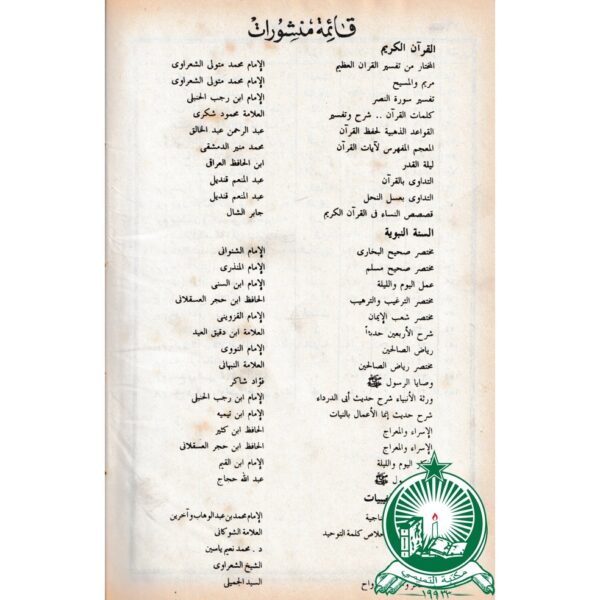 قائمة منشورات
القرآن الكريم
المختار من تفسير القرآن العظيم الإمام محمد متولى الشعراوى
مريم والمسيح الإمام محمد متولى الشعراوى
تفسير سورة النصر الإمام ابن رجب الحنبلى
كلمات القرآن .. شرح وتفسير العلامة محمود شكرى
القواعد الذهبية لحفظ القرآن عبد الرحمن عبد الخالق
المعجم المفهرس لآيات القرآن محمد منير الدمشقى
ليلة القدر ابن الحافظ العراقى
التداوى بالقرآن عبد المنعم قنديل
التداوى بعسل النحل عبد المنعم قنديل
قصص النساء فى القرآن الكريم جابر الشال
السنة النبوية
مختصر صحيح البخارى الإمام الشنوانى
مختصر صحيح مسلم الإمام المنذرى
عمل اليوم والليلة الإمام ابن السنى
مختصر الترغيب والترهيب الحافظ ابن حجر العسقلانى
مختصر شعب الإيمان الإمام القزوينى
شرح الأربعين حديثاً العلامة ابن دقيق العيد
رياض الصالحين الإمام النووى
مختصر رياض الصالحين العلامة النبهانى
وصايا الرسول ﷺ فؤاد شاكر
ورثة الأنبياء شرح حديث أبى الدرداء الإمام ابن رجب الحنبلى
شرح حديث إنما الأعمال بالنيات الإمام ابن تيميه
الإسراء والمعراج الحافظ ابن كثير
الإسراء والمعراج الحافظ ابن حجر العسقلانى
اليوم والليلة الإمام ابن القيم
ﷺ عبد الله حجاج
الإمام محمد بن عبد الوهاب وآخرين
كلمة التوحيد العلامة الشوكانى
د . محمد نعيم ياسين
الشيخ الشعراوى
السيد الجميلى
مكتبة التميمي